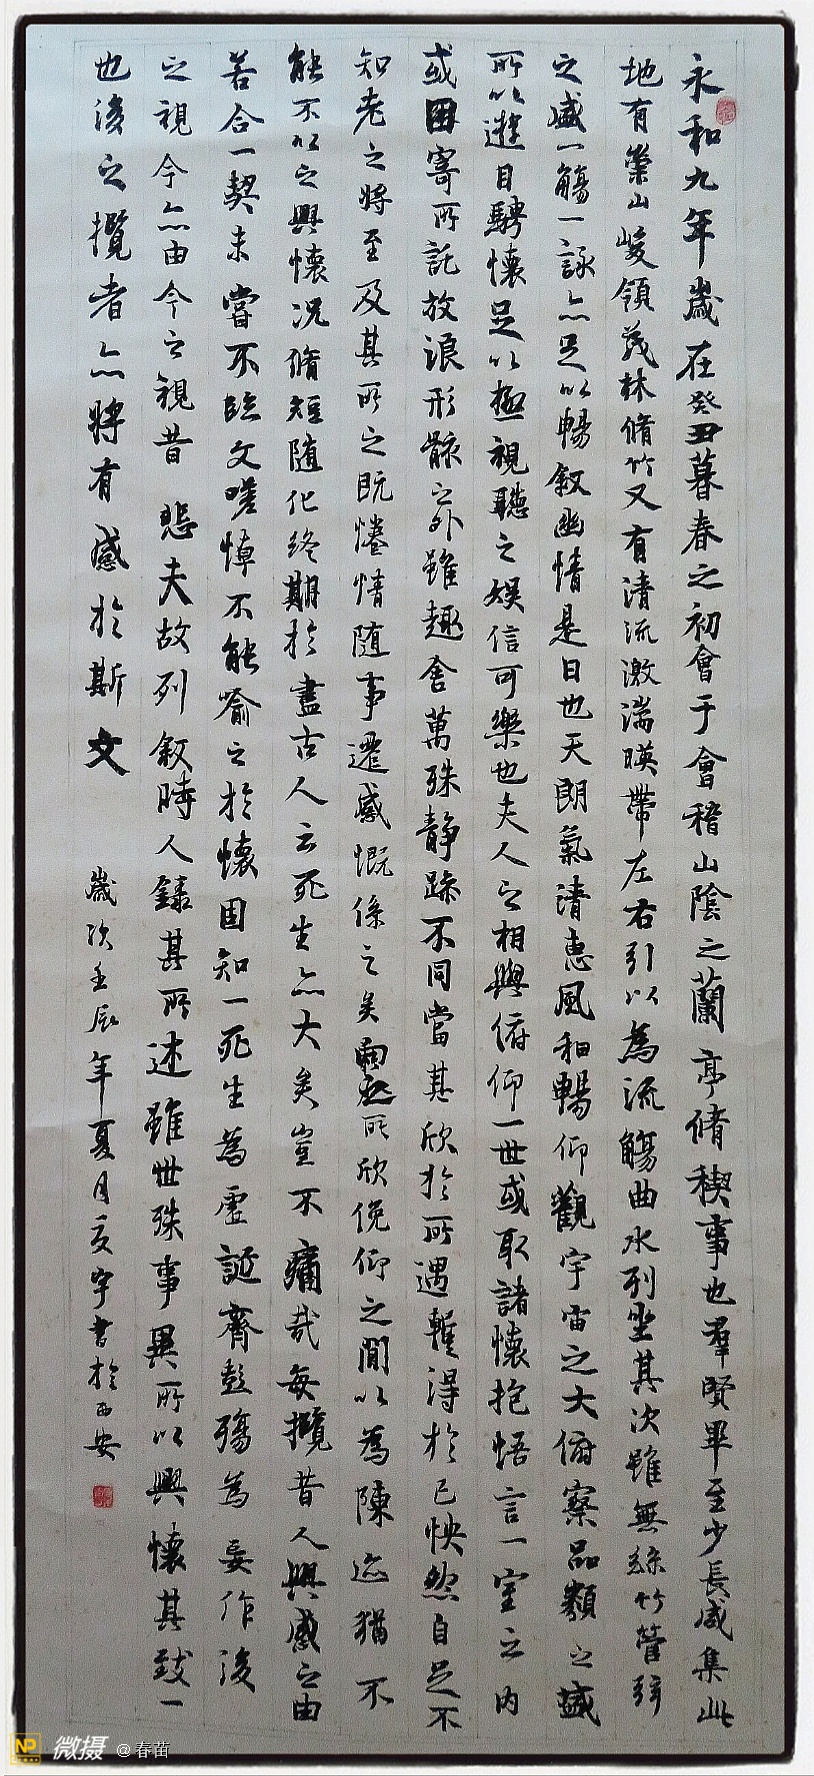 永和九年歲在癸丑暮春之初會于會稽山陰之蘭亭脩禊事也羣賢畢至少長咸集此
地有崇山峻領茂林脩竹又有清流激湍暎帶左右引以為流觴曲水列坐其次雖無絲竹管弦
之盛一觴一詠亦足以暢敘幽情是日也天朗氣清惠風和暢仰觀宇宙之大俯察品類之盛
所以遊目騁懷足以極視聽之娛信可樂也夫人之相與俯仰一世或取諸懷抱悟言一室之內
或因寄所託放浪形骸之外雖趣舍萬殊靜躁不同當其欣於所遇暫得於己怏然自足不
知老之將至及其所之既惓情隨事遷感慨係之矣向之所欣俛仰之間以為陳迹猶不
能不以之興懷況脩短隨化終期於盡古人云死生亦大矣豈不痛哉每攬昔人興感之由
若合一契未嘗不臨文嗟悼不能喻之於懷固知一死生為虛誕齊彭殤為妄作後
之視今亦由今之視昔 悲夫故列敘時人錄其所述雖世殊事異所以興懷其致一
也後之攬者亦將有感於斯文
歲次壬辰年夏月 書於西安
NP 微摄 @春苗